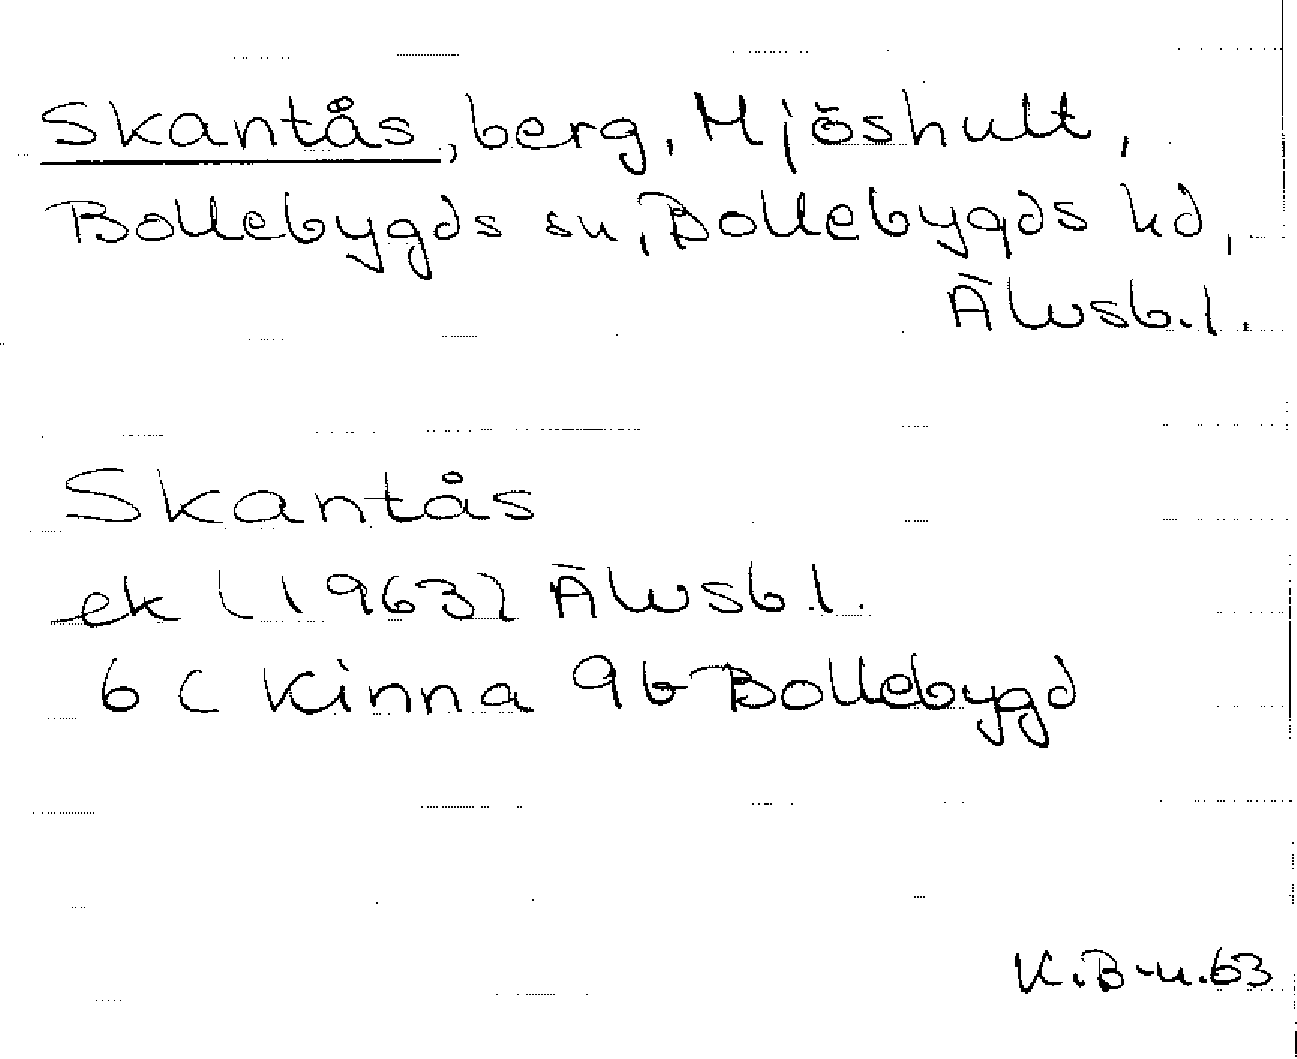 Skantås, berg, Mjöshult,
Bollebygds sn, Bollebygds hd,
Älvsb.l.
Skantås
ek (1963) Älvsb.l.
6 C Kinna 9b Bollebygd
K.B-n.63